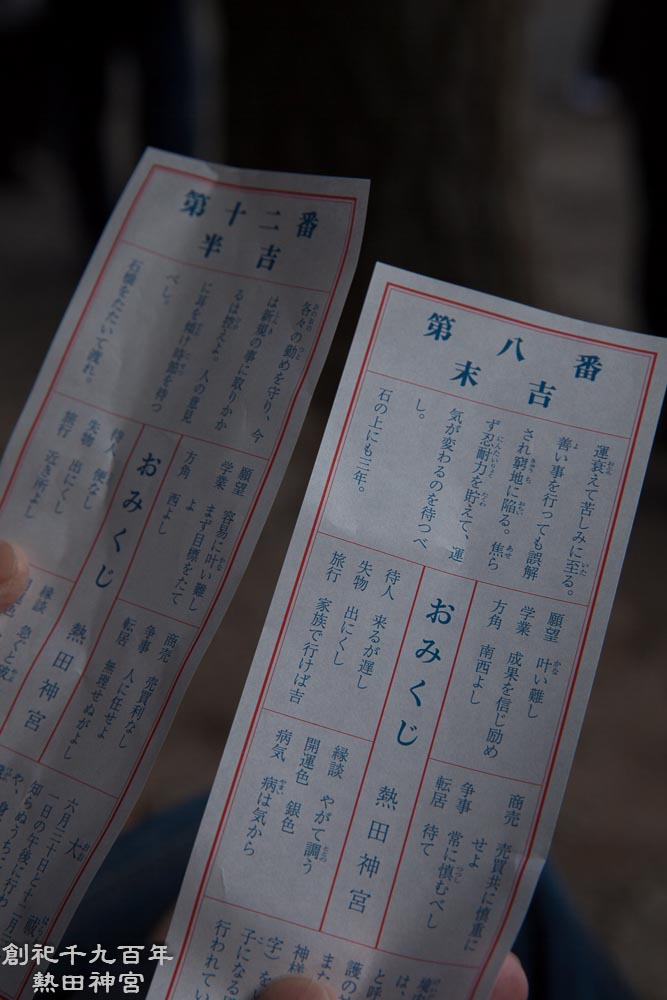 第十二番
半吉
各々の勤めを守り、今
は新規の事に取りかか
るは控えよ。人の意見
に耳を傾け時節を待つ
べし。
石橋をたたいて渡れ。
願望 容易に叶い難し
学業 まず目標をたて
よ
方角 西よし
おみくじ 熱田神宮
待人 便なし
失物 出にくし
旅行 近き所よし
商売 売買利なし
争事 人に任せよ
転居 無理せぬがよし
縁談 急ぐと破
六月三十日と十二月三
一日の午後に行わ
知らぬうちに
第八番
末吉
運衰えて苦しみに至る。
善い事を行っても誤解
され窮地に陥る。焦ら
ず忍耐力を貯えて、運
気が変わるのを待つべ
し。
石の上にも三年。
願望 叶い難し
学業 成果を信じ励め
方角 南西よし
おみくじ 熱田神宮
待人 来るが遅し
失物 出にくし
旅行 家族で行けば吉
商売 売買共に慎重に
せよ
争事 常に慎むべし
転居 待て
縁談 やがて調う
開運色 銀色
病気 病は気から
と呼
は、
また
護の
神様
字)を
子になる
行われてい
創祀千九百年
熱田神宮